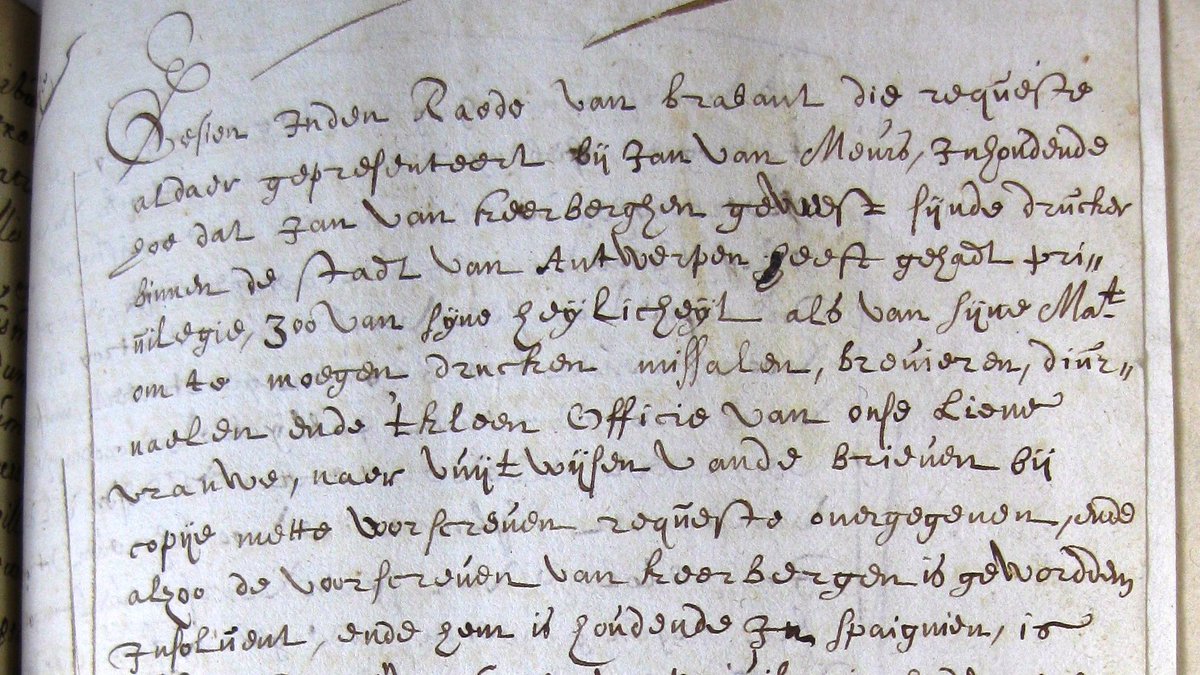 Gesien Inden Raede van brabant die requeste
aldaer gepresenteert bij Jan van Meurs, Inhoudende
hoe dat Jan van keerberghen geweest sijnde drucker
binnen de stadt van Antwerpen heeft gehadt pri„
uilegie, zoo van syne heylicheyt als van syne Mat.
om te moegen drucken missalen, breuieren, diur„
naelen ende 'tkleen Officie van onse Lieue
vrauwe, naer vuytwijsen vande brieuen bij
copije mette voorscreuen requeste ouergegeuen, ende
alzoo de voorscreuen van keerbergen is geworden
Insoluent, ende hem is houdende In spaignien, is